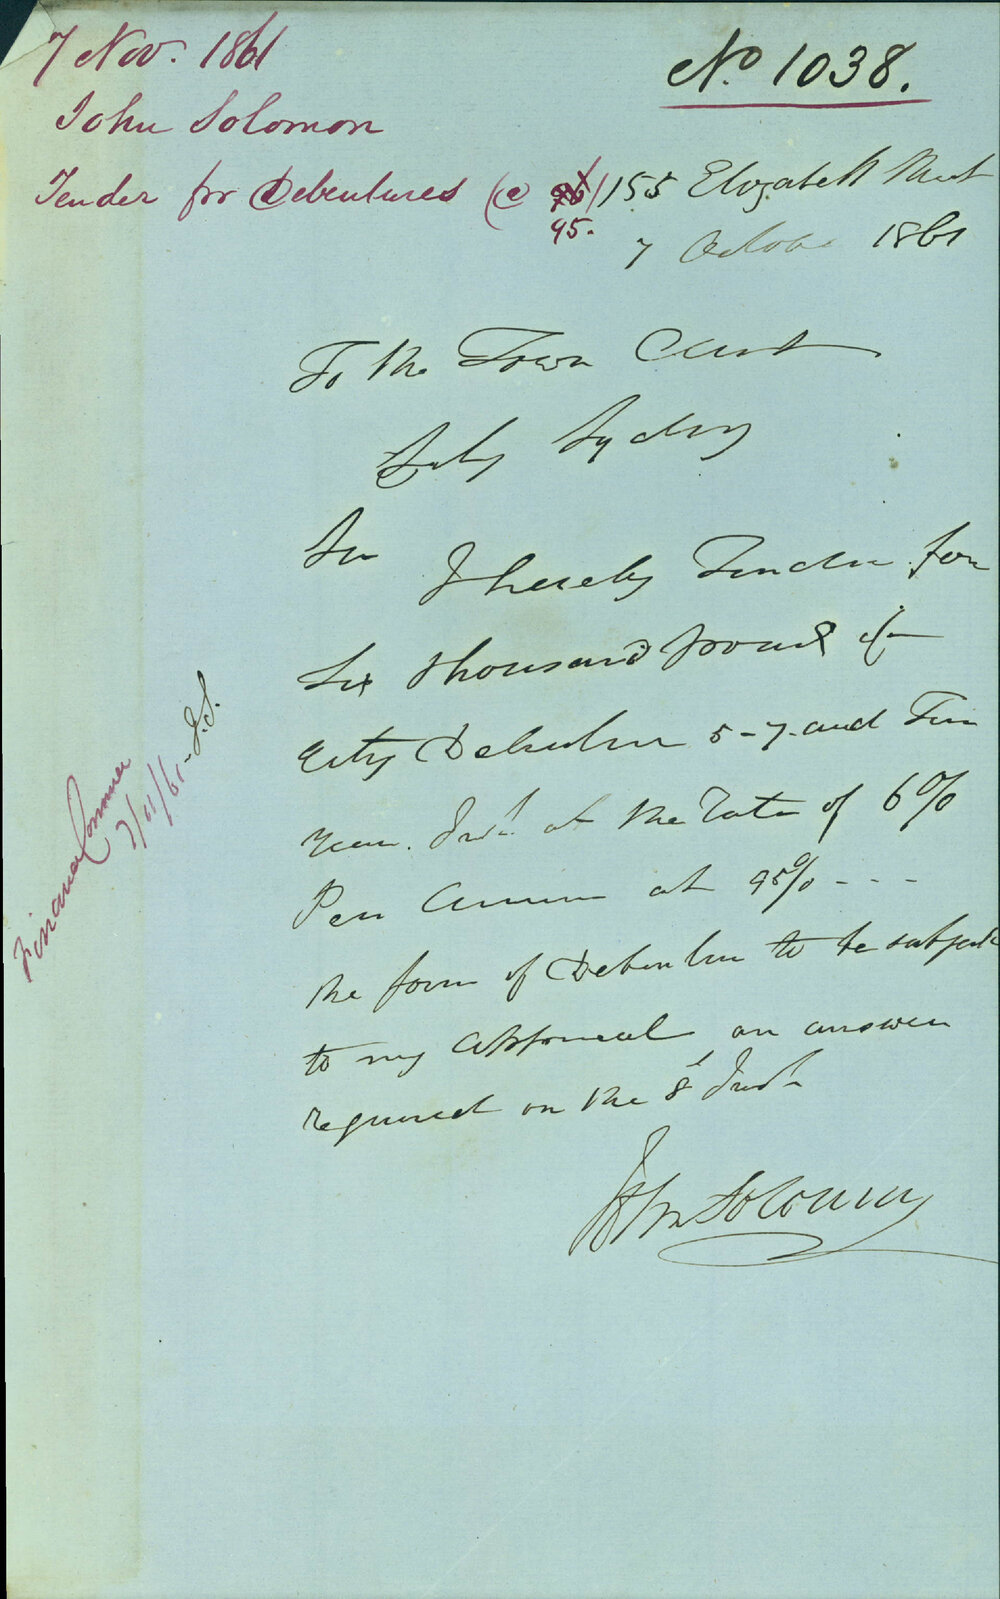 7 Nov. 1861
No 1038.
John Solomon
Tender for Debentures (@ 95.)
155 Elizabeth Street
7 October 1861
To the Town Clerk
City Sydney
Sir I hereby Tender for
Six thousand pounds of
City Debentures 5-7-and Ten
years. Int. at the Rate of 6%
Per Annum at 95% - - -
the form of Debenture to be subject
to my Approval an answer
required on the 8t Inst
John Solomon
Finance Committee
7/11/61-J.S.